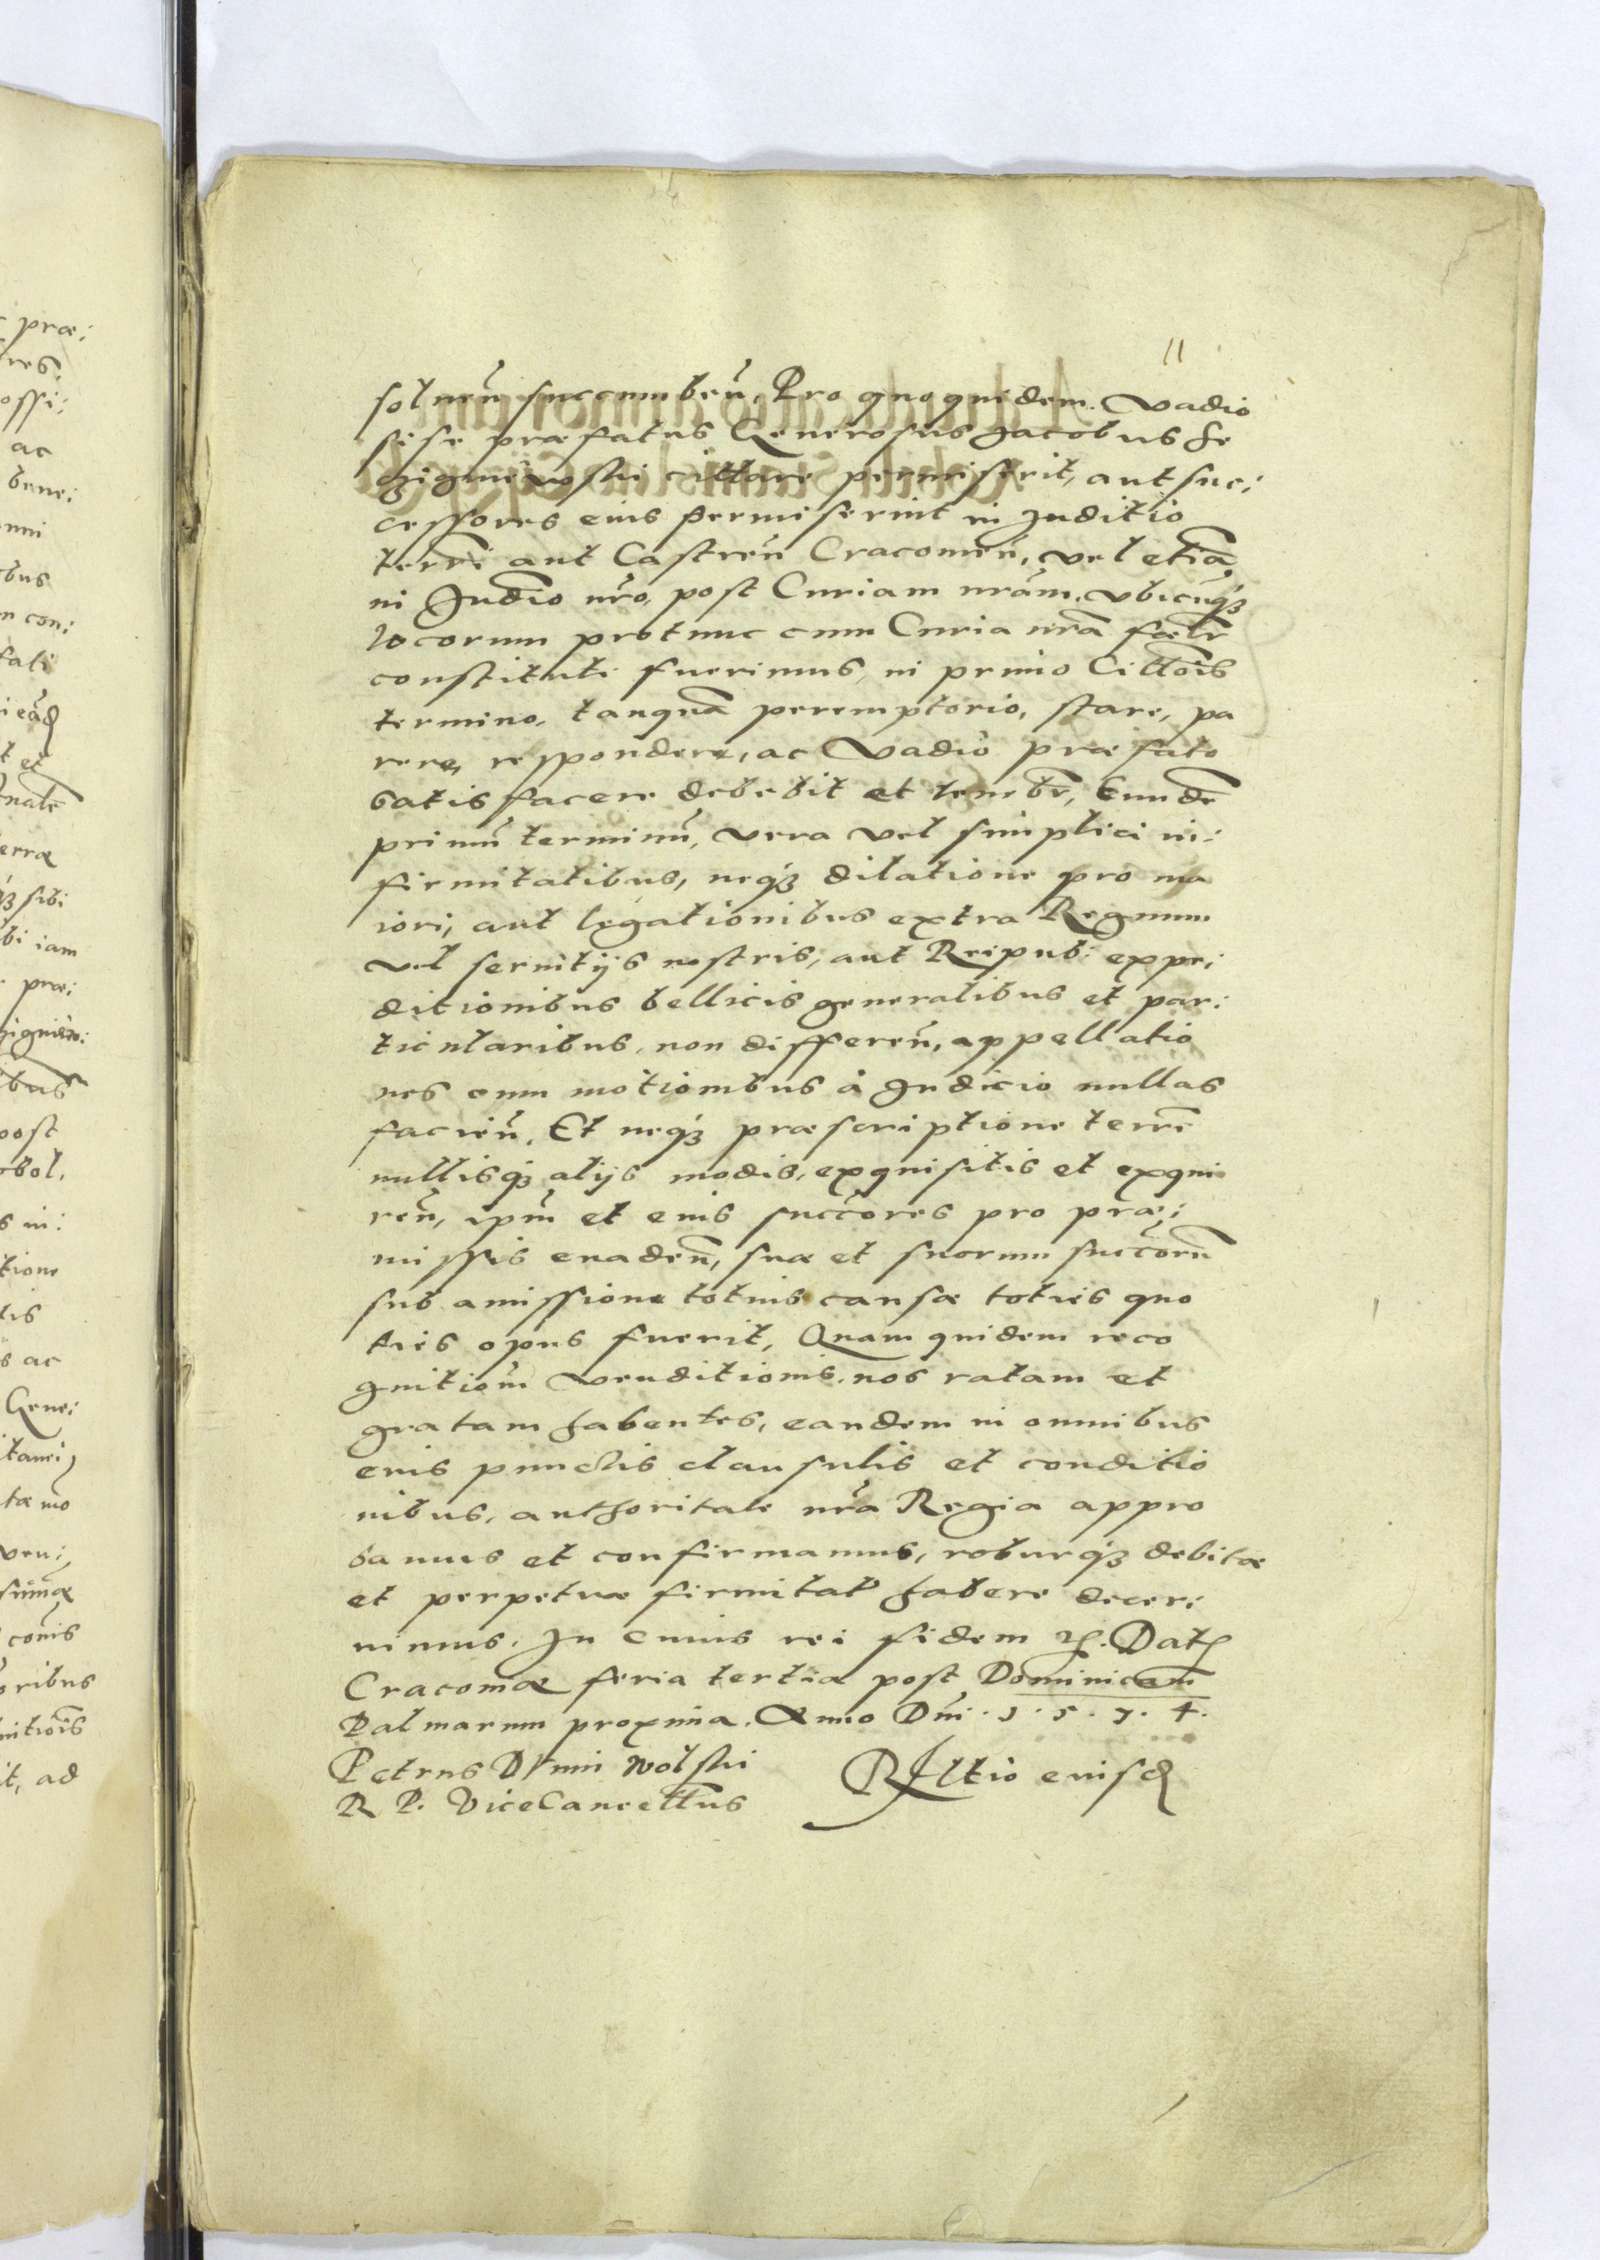 11
soluen̄ succumben̄, Pro quoquidem Vadio
sese præfatus Generosus Jacobus Se
cittare permiserit, aut suc:
cessores eius permiserint in Juditio
terrē aut Castren̄ Cracouien̄, vel etiā
in Judīo nr̄o, post Curiam nrām, vbicūq3
locorum protunc cum Curia nrā fœlr̄
constituti fuerimus, in primo Cittōis
termino, tanquā peremptorio, stare, pa
rere, respondere, ac Vadio præfato
satisfacere debebit et tenebr̄, Eundē
primū terminū, vera vel simplici in:
firmitatibus, neq3 dilatione pro ma
iori, aut legationibus extra Regnum
vel seruitijs nostris, aut Reipub: expe:
ditionibus bellicis generalibus et par:
ticularibus, non differen̄, appellatio
nes cum motionibus à Judicio nullas
facien̄, Et neq3 præscriptione terrē
nullisq3 alijs modis, exquisitis et exqui
ren̄, ipm̄ et eius succōres pro præ:
missis euaden̄, suæ et suorum succōrū
sub amissione totius causæ toties quo
ties opus fuerit, Quam quidem reco
gnitionē venditionis, nos ratam et
gratam habentes, eandem in omnibus
eius punctis clausulis et conditio
nibus, authoritate nrā Regia appro
bamus et confirmamus, roburq3 debitæ
et perpetuæ firmitat habere decer:
nimus. In cuius rei fidem Dat
Cracouiæ feria tertia post Dominicam
Palmarum proxima. Anno Dnī. 1. 5. 7. 4.
Petrus Dunin Wolski
R P. ViceCancellrius
Rltio eiusd